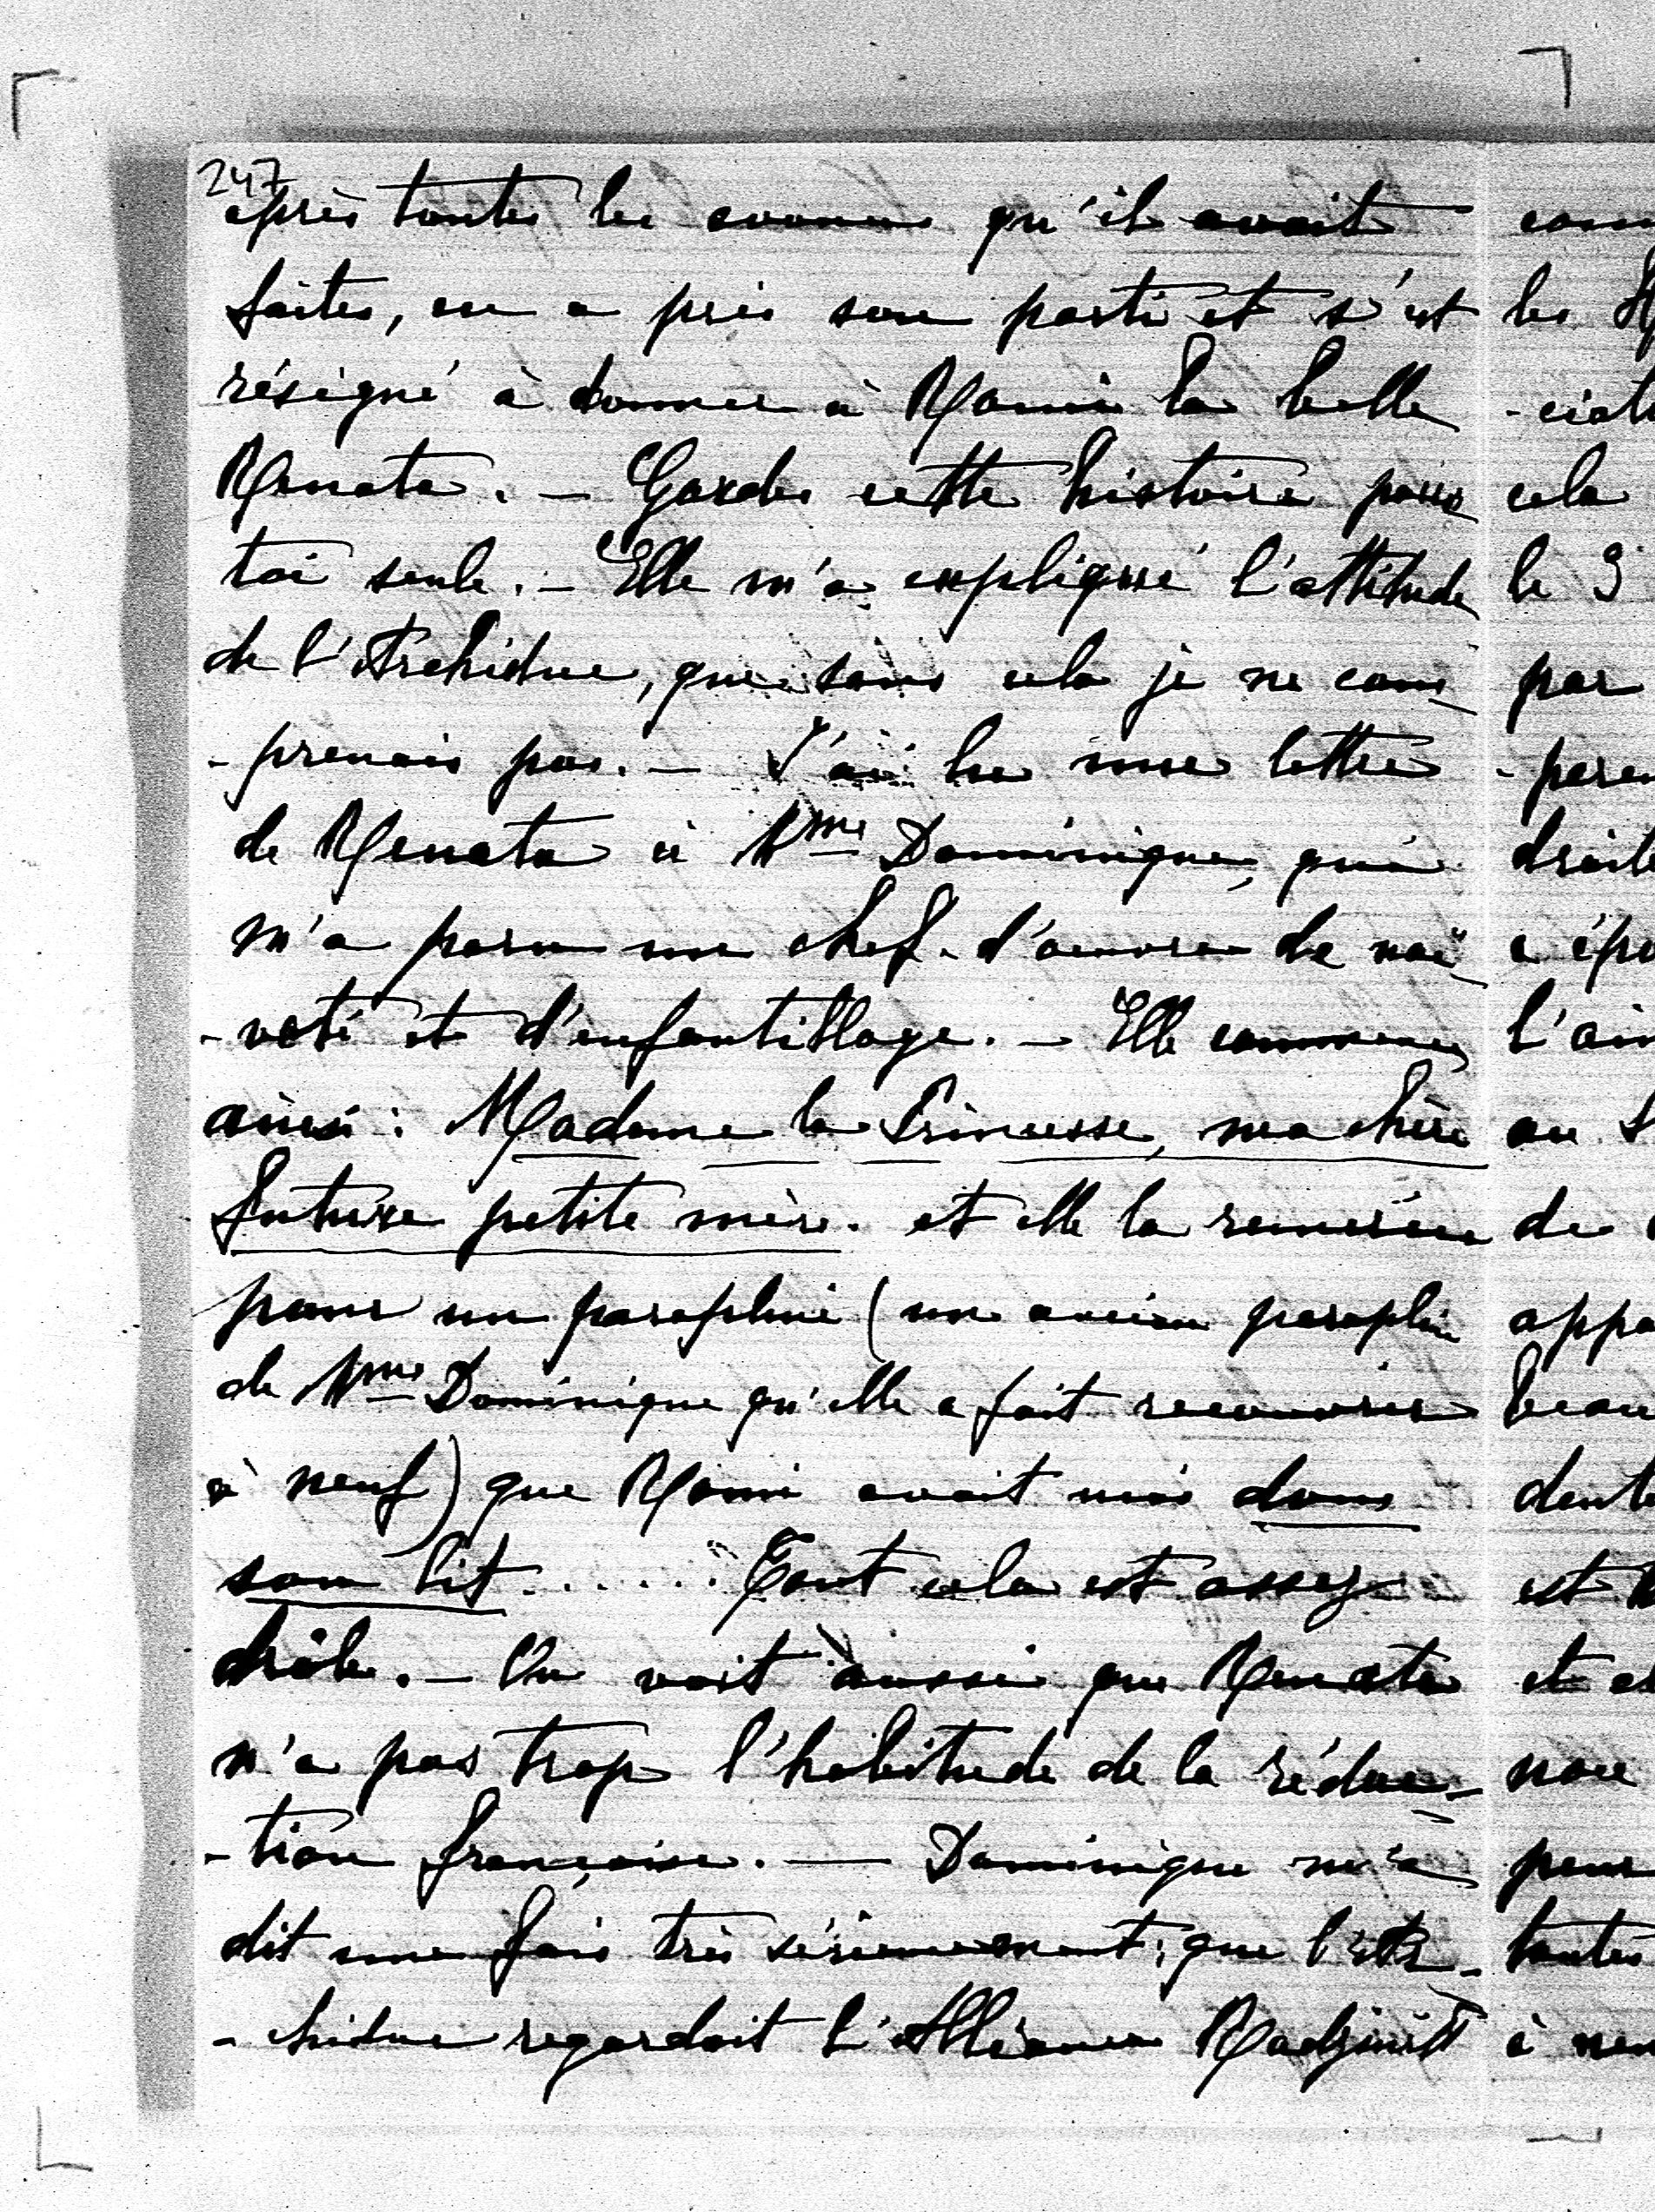 247
après toutes les avances qu'il avait
faites, en a pris son parti et s'est
résigné à donner à Romi la belle
Renata. — Gardes cette histoire pour
toi seule. — Elle m'a expliqué l'attitude
de l'Archiduc, que sans cela je ne com-
-prenais pas. — J'ai lu une lettre
de Renata à Mme Dominique, qui
m'a paru un chef-d'oeuvre de naï-
-veté et d'enfantillage. — Elle commence
ainsi : Madame la Princesse, ma chère
future petite mère. et elle la remercie
pour un parapluie (un ancien parapluie
de Mme Dominique qu'elle a fait recouvrir
à neuf) que Romi avait mis dans
son lit...... Tout cela est assez
drôle. — On voit aussi que Renata
n'a pas trop l'habitude de la rédac-
-tion française. — Dominique m'a
dit une fois très sérieusement, que l'Ar-
-chiduc regardait l'Alliance Radziwill